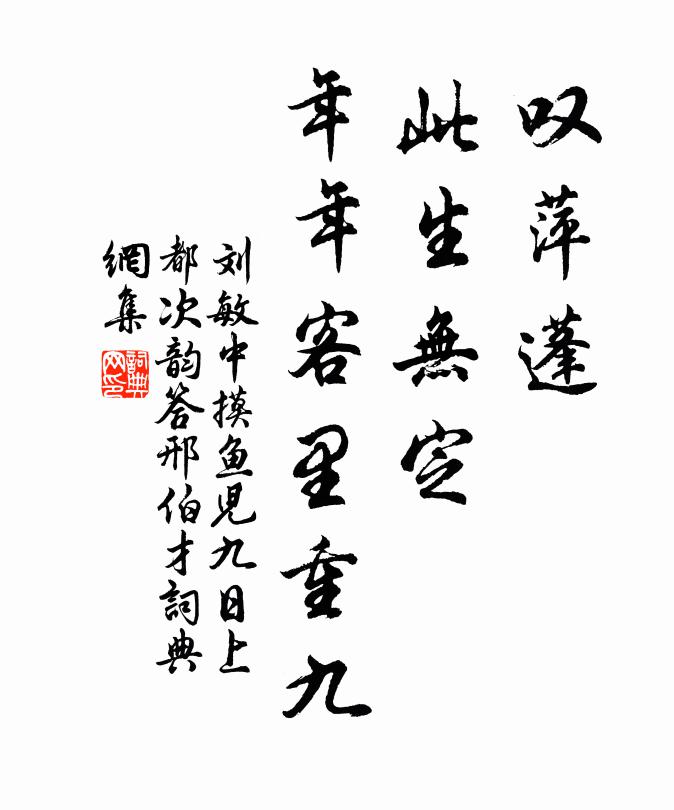 叹萍蓬
此生無定
年年客里重九
刘敏中摸鱼児九日上
都次韵答邢伯才詞典
網集
詞典
网印